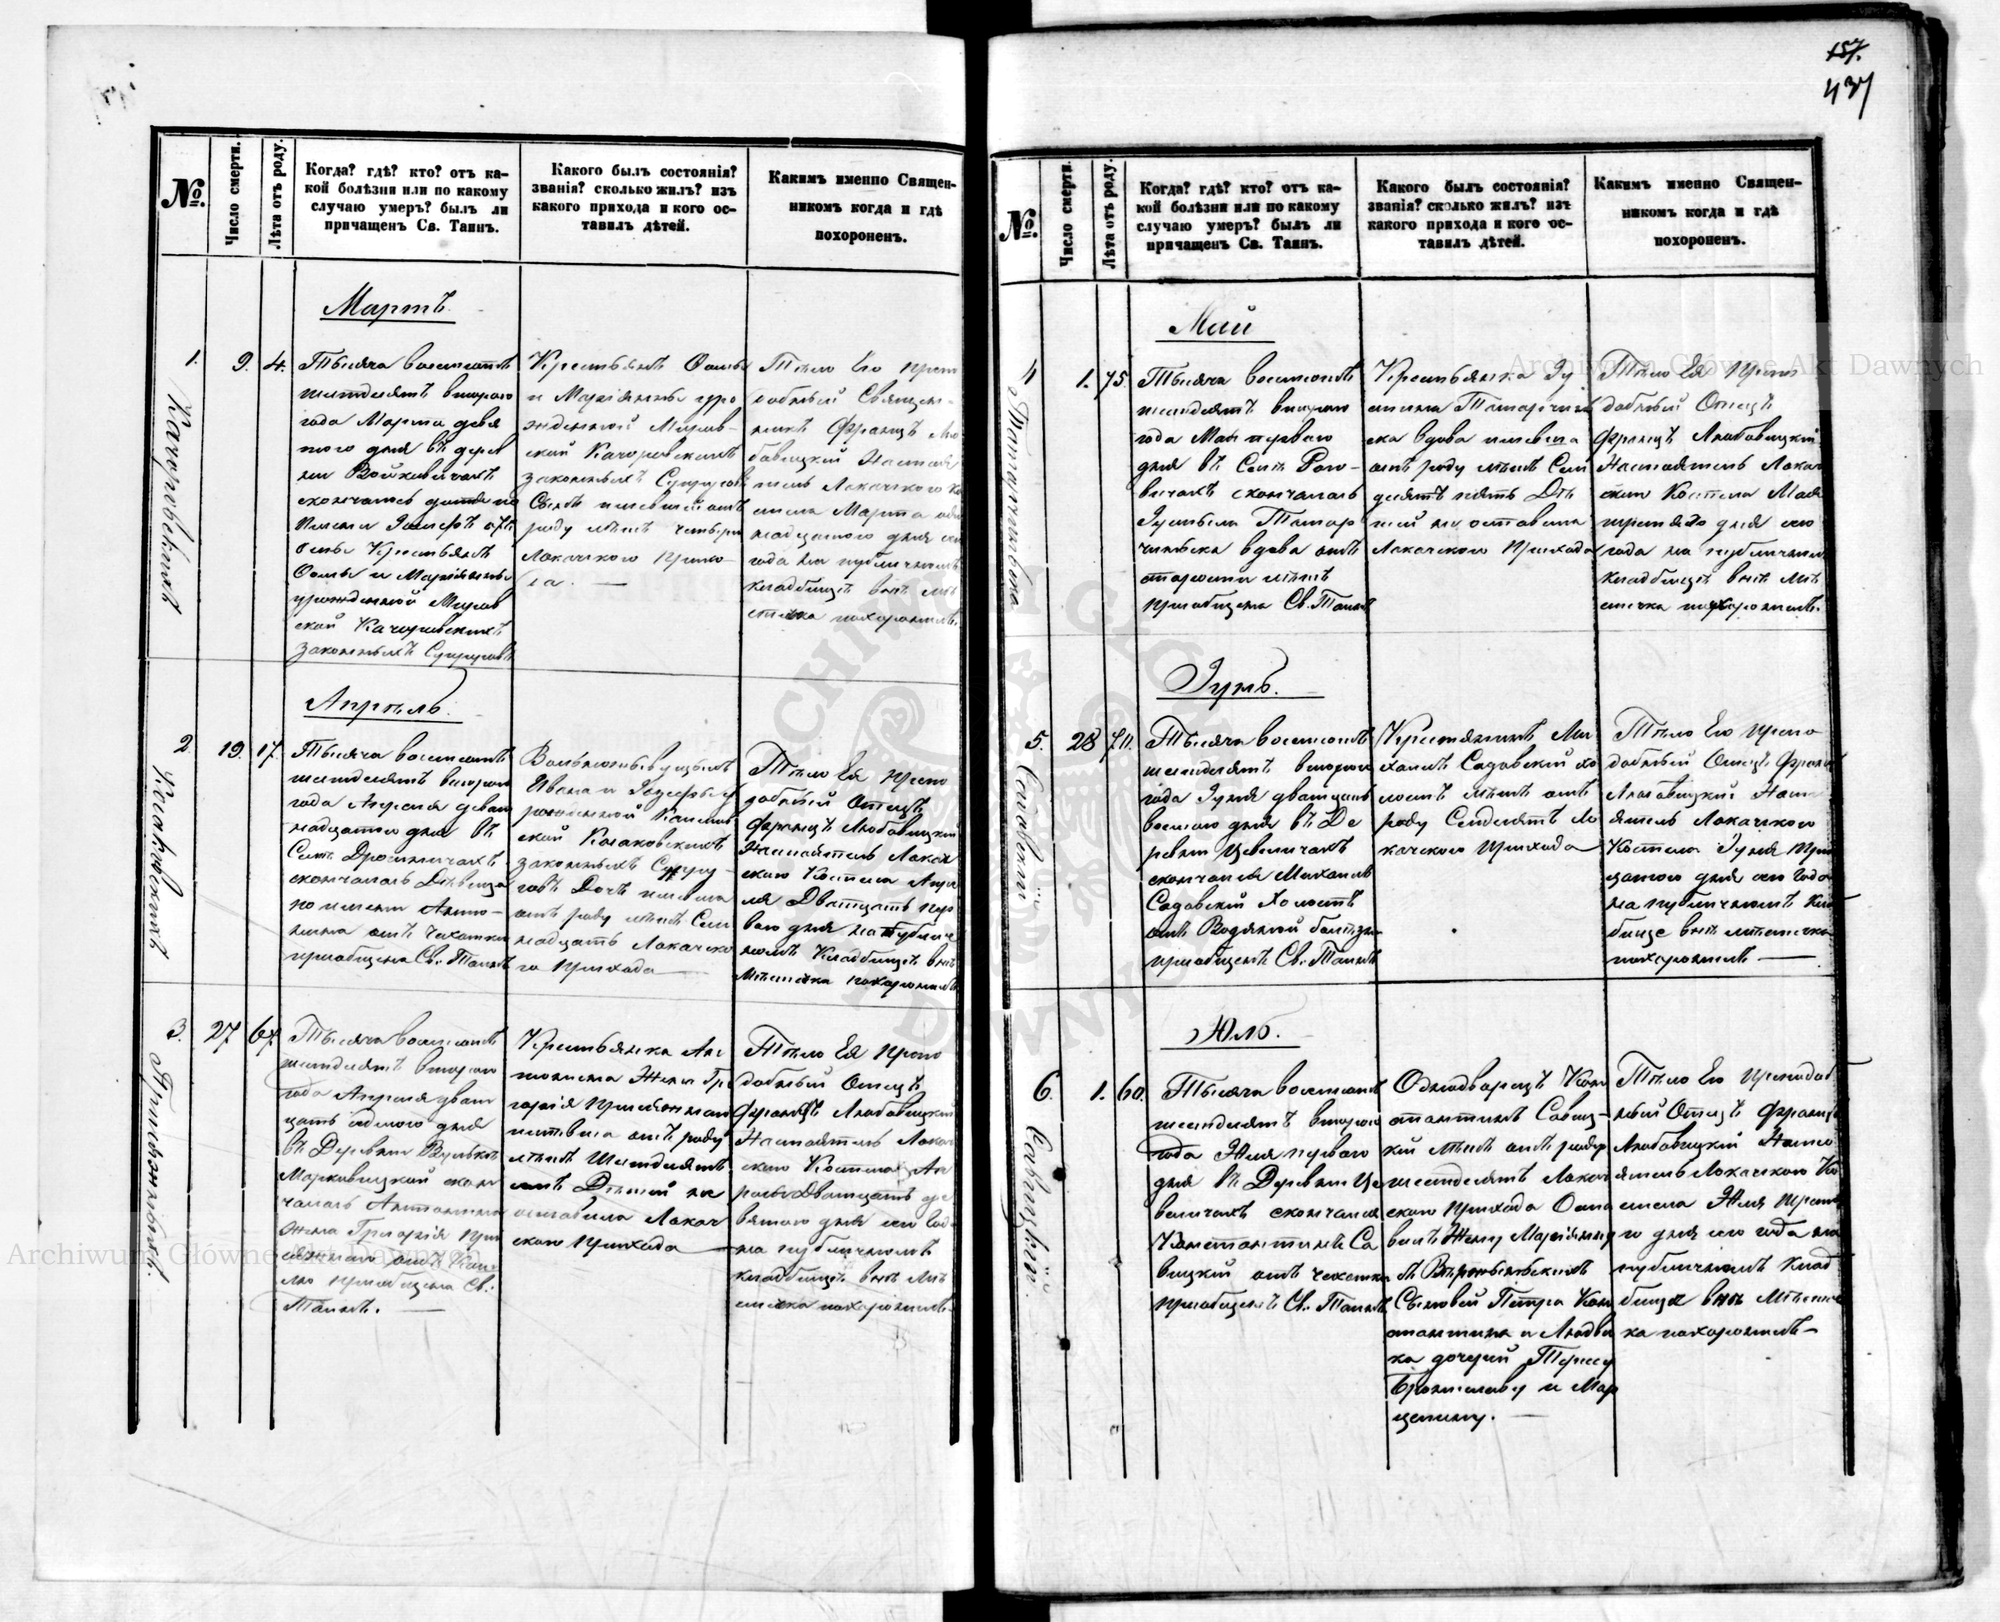 157.
437
№.
Число смерти.
Лѣта отъ роду.
Когда? гдѣ? кто? отъ ка-
кой болѣзни или по какому
случаю умеръ? былъ ли
причащенъ Св. Таинъ.
Какого былъ состоянія?
званія? сколько жилъ? изъ
какого прихода и кого ос-
тавилъ дѣтей.
Какимъ именно Священ-
никомъ когда и гдѣ
похороненъ.
Мартъ.
1.
9.
4.
Тысяча восемсотъ
шестдесятъ втораго
года Марта девя
того дня въ дерев
ни Войкевичахъ
скончалось дитя по
имени Іосифъ
Крестьянъ
и Маріянны
урожденной
ской Качоровскихъ
законныхъ Супруговъ
и Маріянны уро
жденной
ской Качоровскихъ
законныхъ Супруговъ
Сынъ имѣвшій отъ
роду лѣтъ четыри
Локачского прихо-
да. —
Тѣло Его преп
добный Священ-
никъ Францъ Лю
бовицкій Настоя
тель Локачского Ко
стела Марта
надцатого дня
года на публичномъ
кладбищѣ внѣ мѣ
стечка похоронилъ.
Апрѣль.
2
19.
17.
Тысяча восемсотъ
шестдесятъ втораго
года Апреля девят
надцатого дня въ
Селѣ
скончалась Дѣвица
по имени Анто-
нина отъ чахотки
пріобщена Св. Таинъ
Ивана и
рожденной
ской Козаковскихъ
законныхъ Супру-
говъ Дочь имѣвша
отъ роду лѣтъ Сем
надцать Локачско
го прихода —
Тѣло Ея преп
добный Отецъ
Францъ Любовицкій
Настоятель Локач
ского Костела Апре
ля Двадцать пер
вого дня на публич
номъ Кладбищѣ внѣ
Мѣстечка похоронилъ
3.
27
67.
Тысяча восемсотъ
шестдесятъ втораго
года Апреля двад
цать седмого дня
въ Деревни Вулькѣ
Марковицкой скон
чалась Антонина
Жена Григорія
пріобщена Св.
Таинъ. —
Крестьянка Ан
тонина Жена Гри
горія
имѣвша отъ роду
лѣтъ Шестдесятъ
семь Дѣтей не
оставила Локач
ского прихода —
Тѣло Ея преп
добный Отецъ
Францъ Любовицкій
Настоятель Локач
ского Костела Ап
реля Двадцать де
вятого дня сего года
на публичномъ
кладбищѣ внѣ Мѣ
стечка похоронилъ
№.
Число смерти.
Лѣта отъ роду.
Когда? гдѣ? кто? отъ ка-
кой болѣзни или по какому
случаю умеръ? былъ ли
причащенъ Св. Таинъ.
Какого былъ состоянія?
званія? сколько жилъ? изъ
какого прихода и кого ос-
тавилъ дѣтей.
Какимъ именно Священ-
никомъ когда и гдѣ
похороненъ.
Май
4
1.
75.
Тысяча восемсотъ
шестдесятъ втораго
года Мая первого
дня въ Селѣ Рого-
вичахъ скончалась
Іустина Татар
чинска вдова отъ
старости лѣтъ
пріобщена Св. Таинъ
Крестьянка Іу
стина Татарчин
ска вдова имѣвша
отъ роду лѣтъ Сем
десятъ пять Дѣ
тей не оставила
Локачского прихода
Тѣло Ея преп
добный Отецъ
Францъ Любовицкій
Настоятель Локач
ского Костела Мая
третяго дня сего
года на публичномъ
кладбищѣ внѣ Мѣ
стечка похоронилъ.
Іунь.
5.
28
70.
Тысяча восемсотъ
шестдесятъ втораго
года Іуня двадцать
восмого дня въ Де
ревни Цевеличахъ
скончался Михаилъ
Садовскій Холостъ
отъ Водяной болѣзни
пріобщенъ Св. Таинъ
Крестянинъ Ми
хаилъ Садовскій хо
лостъ лѣтъ отъ
роду Семдесятъ Ло
качского прихода
Тѣло Его преп
добный Отецъ Францъ
Любовицкій Насто
ятель Локачского
Костела Іуня трид
цатого дня сего года
на публичномъ клад
бище внѣ мѣстечка
похоронилъ —
Юль.
6.
1.
60.
Тысяча восемсотъ
шестдесятъ втораго
года Юля первого
дня въ Деревни Це
величахъ скончался
Константинъ Са
вицкій отъ чахотки
пріобщенъ Св. Таинъ
Однодворецъ Кон
стантинъ Савиц-
кій лѣтъ отъ роду
шестдесятъ Локач
ского прихода Оста
вилъ Жену Маріянну
Сыновей Петра Кон
стантина и Людви
ка дочерей Терезу
Брониславу и Мар
целину. —
Тѣло Его преподоб
ный Отецъ Францъ
Любовицкій Насто
ятель Локачского Ко
стела Юля третя
го дня сего года на
публичномъ Клад
бище внѣ Мѣстеч
ка похоронилъ —
Archiwum Główne Akt Dawnych
Archiwum Główne Akt Dawnych